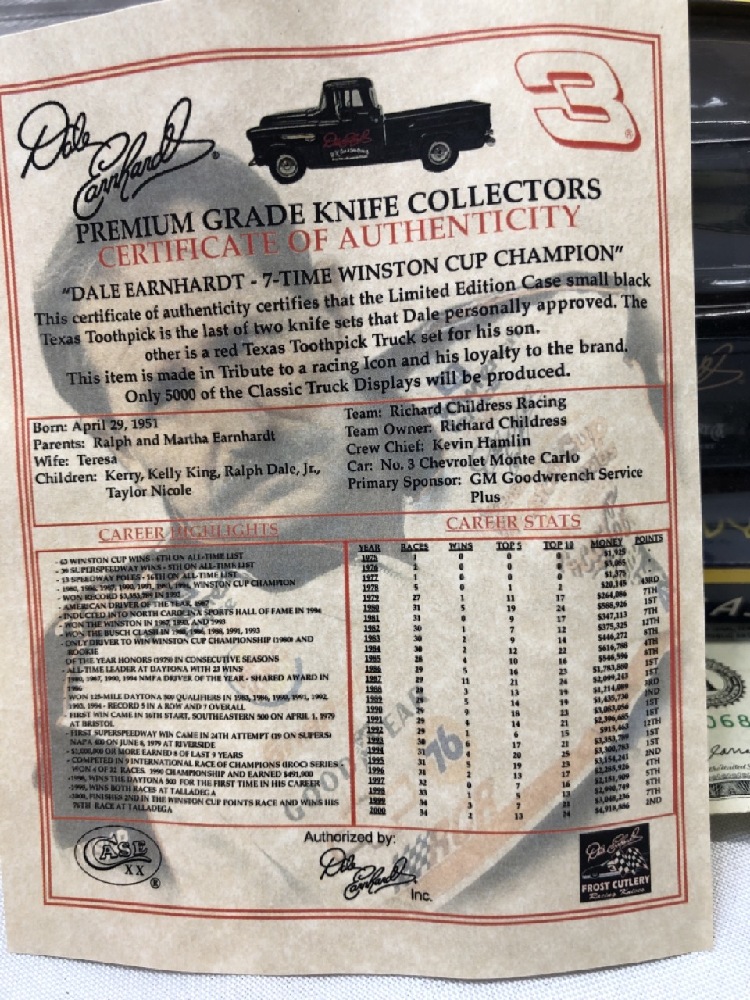 Dale Earnhardt ®
3 ®
PREMIUM GRADE KNIFE COLLECTORS
CERTIFICATE OF AUTHENTICITY
"DALE EARNHARDT - 7-TIME WINSTON CUP CHAMPION"
This certificate of authenticity certifies that the Limited Edition Case small black
Texas Toothpick is the last of two knife sets that Dale personally approved. The
other is a red Texas Toothpick Truck set for his son.
This item is made in Tribute to a racing Icon and his loyalty to the brand.
Only 5000 of the Classic Truck Displays will be produced.
Born: April 29, 1951
Parents: Ralph and Martha Earnhardt
Wife: Teresa
Children: Kerry, Kelly King, Ralph Dale, Jr.,
Taylor Nicole
Team: Richard Childress Racing
Team Owner: Richard Childress
Crew Chief: Kevin Hamlin
Car: No. 3 Chevrolet Monte Carlo
Primary Sponsor: GM Goodwrench Service
Plus
CAREER HIGHLIGHTS
- WINSTON CUP WINS - 6TH ON ALL-TIME LIST
- SUPERSPEEDWAY WINS - 5TH ON ALL-TIME LIST
- SPEEDWAY POLES - 16TH ON ALL-TIME LIST
- 1980, 1986, 1987, 1990, 1991, 1993, 1994, WINSTON CUP CHAMPION
- WON RECORD IN 1993
- AMERICAN DRIVER OF THE YEAR, 1987
- INDUCTED INTO NORTH CAROLINA SPORTS HALL OF FAME IN 1994
- WON THE WINSTON IN 1987, 1990, AND 1993
- WON THE BUSCH CLASH IN 1986, 1988, 1991, 1993
- ONLY DRIVER TO WIN WINSTON CUP CHAMPIONSHIP (1980) AND
ROOKIE
OF THE YEAR HONORS (1979) IN CONSECUTIVE SEASONS
- ALL-TIME LEADER AT DAYTONA WITH WINS
- 1987, 1990, 1994 NMPA DRIVER OF THE YEAR - SHARED AWARD IN
1986
WON 125-MILE DAYTONA 500 QUALIFIERS IN 1983, 1986, 1990, 1991, 1992,
1993, 1994 - RECORD 5 IN A ROW AND 7 OVERALL
FIRST WIN CAME IN 16TH START, SOUTHEASTERN 500 ON APRIL 1, 1979
AT BRISTOL
- FIRST SUPERSPEEDWAY WIN CAME IN 24TH ATTEMPT
NAPA 400 ON JUNE 8, AT RIVERSIDE
- OR MORE EARNED LAST 9 YEARS
- COMPETED IN 9 INTERNATIONAL RACE OF CHAMPIONS (IROC) SERIES -
WON RACES, 1990 CHAMPIONSHIP AND EARNED
- 1998, WINS THE DAYTONA 500 FOR THE FIRST TIME IN HIS CAREER
- 1999, WINS BOTH RACES AT TALLADEGA
- 2000, FINISHES 2ND IN THE WINSTON CUP POINTS RACE AND WINS HIS
76TH RACE AT TALLADEGA
CAREER STATS
YEAR RACES WINS TOP 5 TOP 10 MONEY POINTS
1975 1 0 0 0
1976 2 0 0 0
1977 1 0 0 0
1978 5 0 1 2
1979 27 1 11 17 $264,086 7TH
1980 31 5 19 24 $588,926 1ST
1981 31 0 9 17 $347,113 7TH
1982 30 1 7 12 $375,325 12TH
1983 30 2 9 14 $446,272 8TH
1984 30 2 12 22
1985 28 4 10 16
1986 29 5 16 23 1ST
1987 29 11 21 24 1ST
1988 29 3 13 19 3RD
1989 29 5 14 19
1990 29 9 18 23 1ST
1991 29 4 14 21 1ST
1992 29 1 6 15 12TH
1993 30 6 17 21 1ST
1994 31 4 20 25 1ST
1995 31 5 19 23 2ND
1996 31 2 13 17 4TH
1997 32 0 7 16 5TH
1998 33 1 5 13
1999 34 3 7 21 7TH
2000 34 2 13 24 2ND
GOODYEAR
76
CASE
XX
®
Authorized by:
Dale Earnhardt
Inc.
FROST CUTLERY
Racing Knives
068